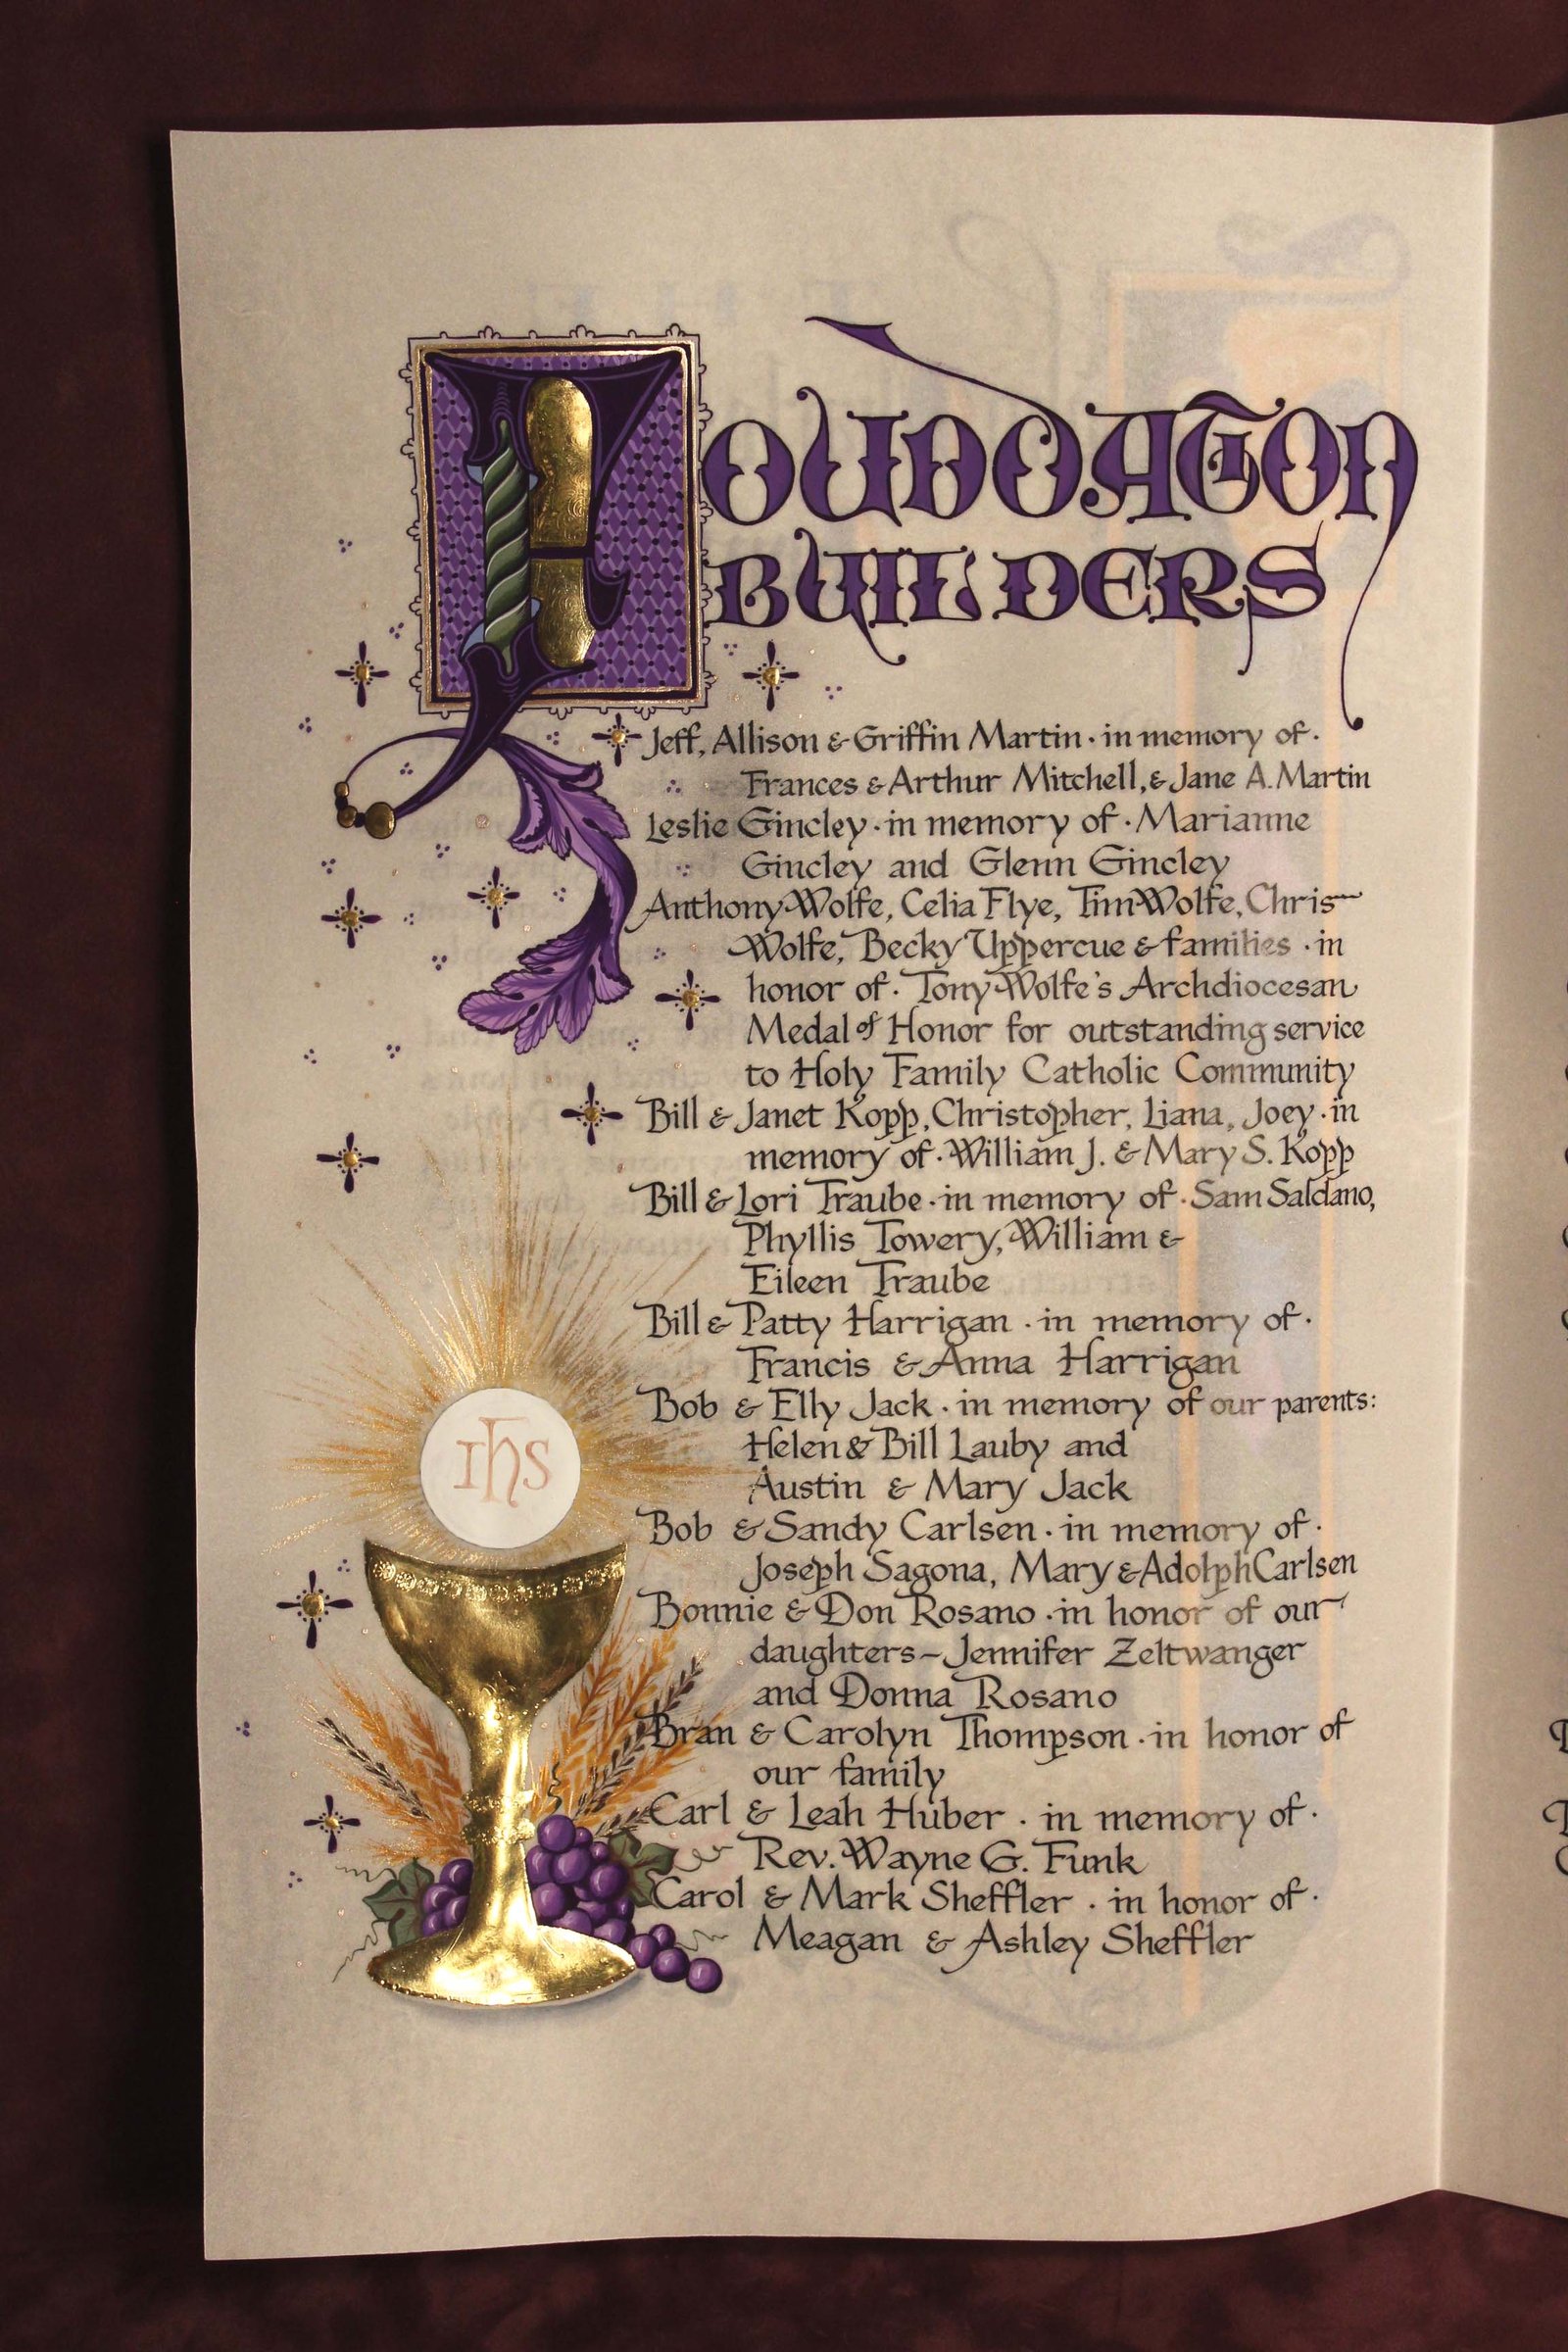 FOUNDATION
BUILDERS
Jeff, Allison & Griffin Martin · in memory of ·
Frances & Arthur Mitchell, & Jane A. Martin
Leslie Gincley · in memory of · Marianne
Gincley and Glenn Gincley
Anthony Wolfe, Celia Flye, Tim Wolfe, Chris
Wolfe, Becky Uppercue & families · in
honor of · Tony Wolfe's Archdiocesan
Medal of Honor for outstanding service
to Holy Family Catholic Community
Bill & Janet Kopp, Christopher, Liana, Joey · in
memory of · William J. & Mary S. Kopp
Bill & Lori Traube · in memory of · Sam Saldano,
Phyllis Towery, William &
Eileen Traube
Bill & Patty Harrigan · in memory of ·
Francis & Anna Harrigan
Bob & Elly Jack · in memory of our parents:
Helen & Bill Lauby and
Austin & Mary Jack
IhS
Bob & Sandy Carlsen · in memory of ·
Joseph Sagona, Mary & Adolph Carlsen
Bonnie & Don Rosano · in honor of our
daughters – Jennifer Zeltwanger
and Donna Rosano
Bran & Carolyn Thompson · in honor of
our family
Carl & Leah Huber · in memory of ·
Rev. Wayne G. Funk
Carol & Mark Sheffler · in honor of ·
Meagan & Ashley Sheffler